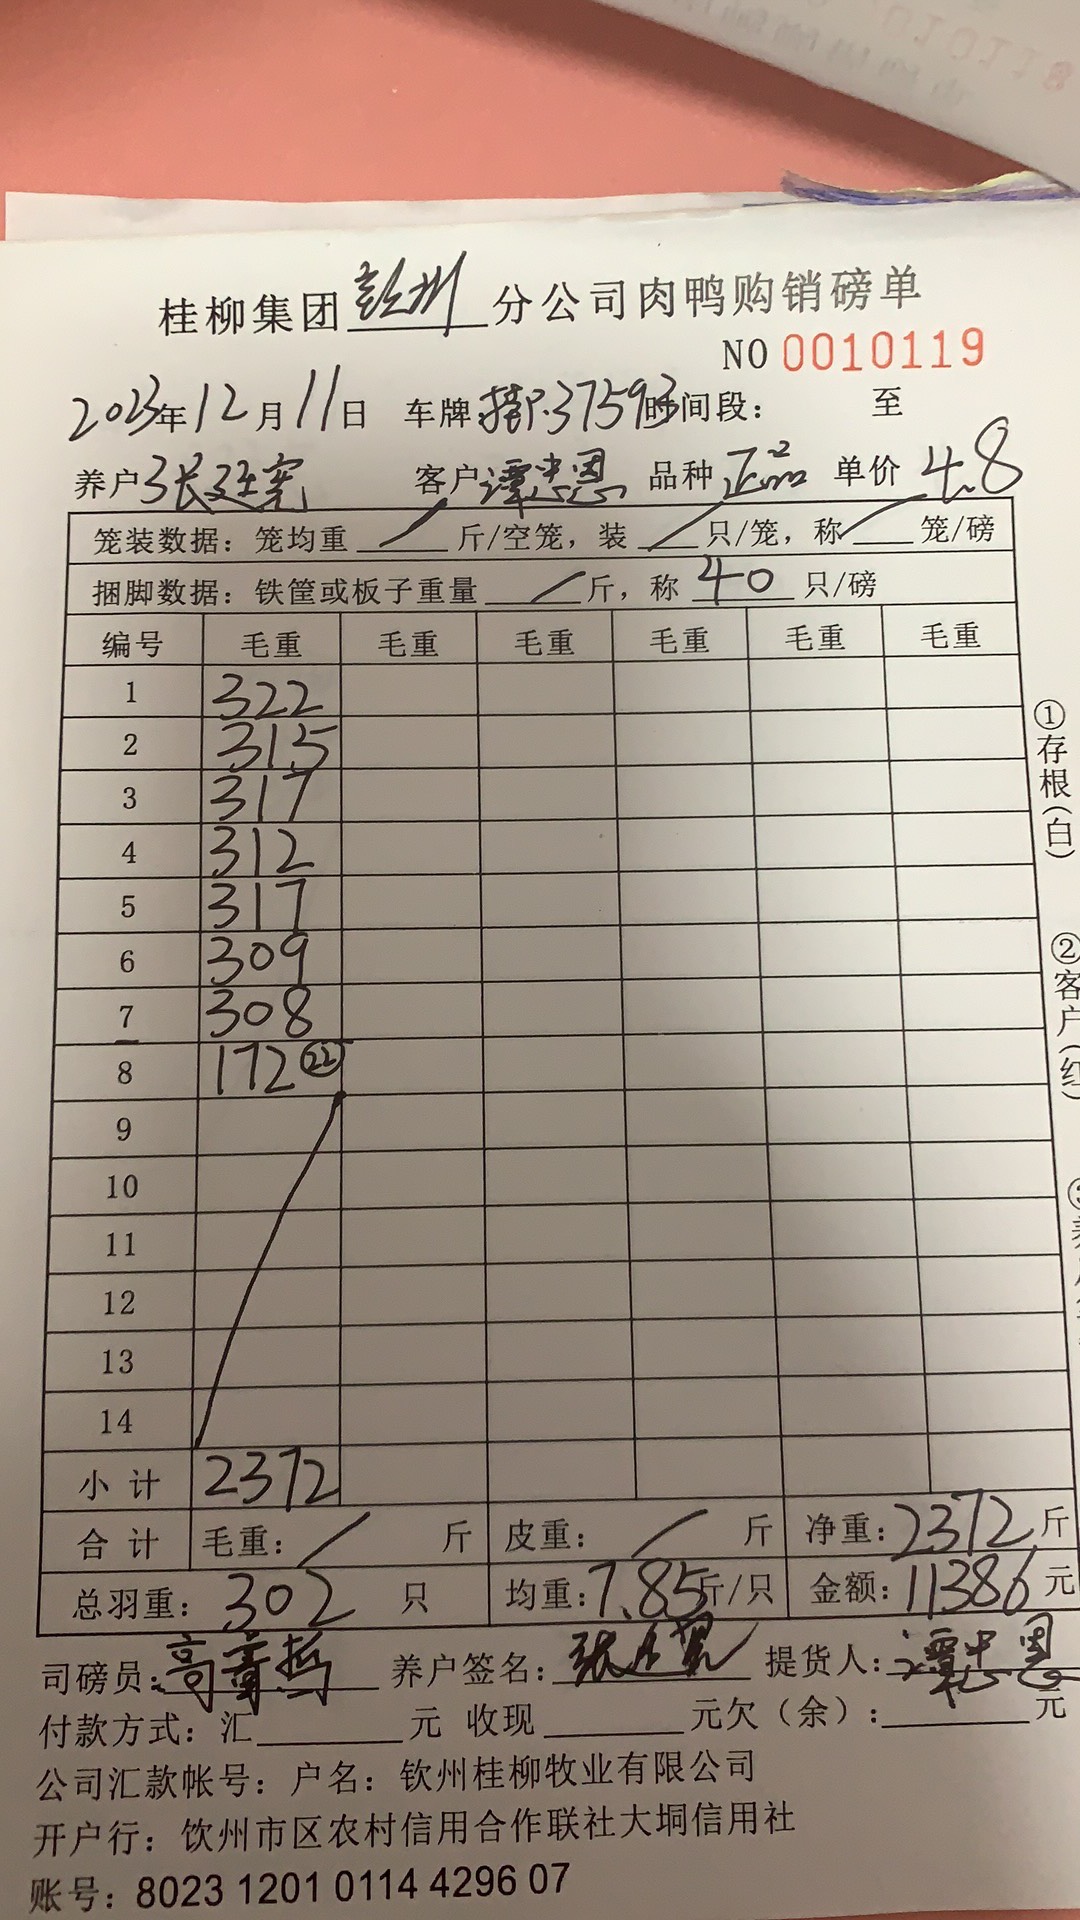 桂柳集团钦州分公司肉鸭购销磅单
NO 0010119
2023年12月11日 车牌: 37593 时间段: 至
养户 张廷宪 客户 谭忠恩 品种 正品 单价 4.8
笼装数据: 笼均重 / 斤/空笼, 装 / 只/笼, 称 / 笼/磅
捆脚数据: 铁筐或板子重量 / 斤, 称 40 只/磅
编号 毛重 毛重 毛重 毛重 毛重 毛重
1 322
2 315
3 317
4 312
5 317
6 309
7 308
8 172 22
9
10
11
12
13
14
小计 2372
合计 毛重: / 斤 皮重: / 斤 净重: 2372 斤
总羽重: 302 只 均重: 7.85 斤/只 金额: 11386 元
司磅员: 养户签名: 提货人: 谭忠恩
付款方式: 汇 元 收现 元欠(余): 元
公司汇款帐号: 户名: 钦州桂柳牧业有限公司
开户行: 钦州市区农村信用合作联社大垌信用社
账号: 8023 1201 0114 4296 07
①存根(白)
②客户(红)